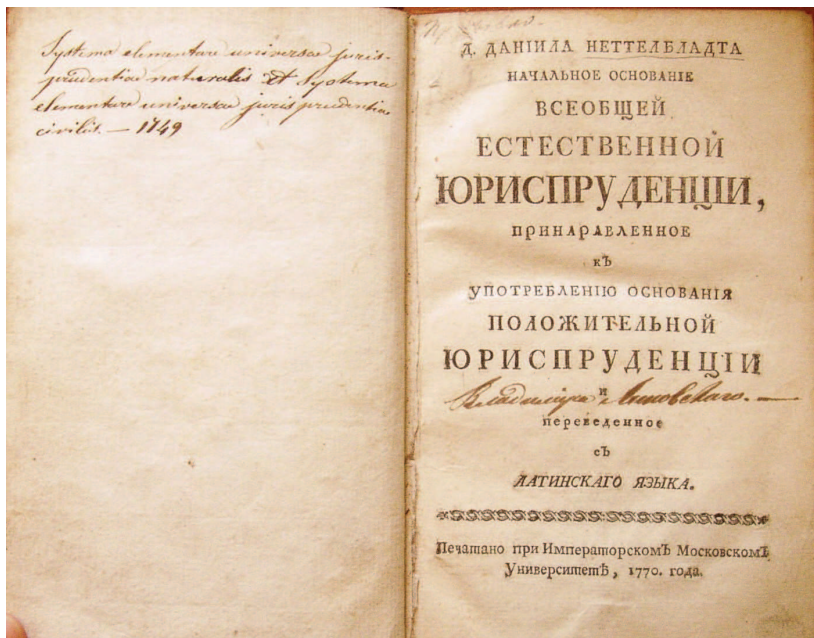 Systema elementare universae juris-
prudentiae naturalis et Systema
elementare universae jurisprudentiae
civilis. — 1749
Д. ДАНІИЛА НЕТТЕЛБЛАДТА
НАЧАЛЬНОЕ ОСНОВАНІЕ
ВСЕОБЩЕЙ
ЕСТЕСТВЕННОЙ
ЮРИСПРУДЕНЦІИ,
ПРИНАРАВЛЕННОЕ
КЪ
УПОТРЕБЛЕНІЮ ОСНОВАНІЯ
ПОЛОЖИТЕЛЬНОЙ
ЮРИСПРУДЕНЦІИ
И
переведенное
съ
ЛАТИНСКАГО ЯЗЫКА.
Печатано при Императорскомъ Московскомъ
Университетѣ, 1770. года.